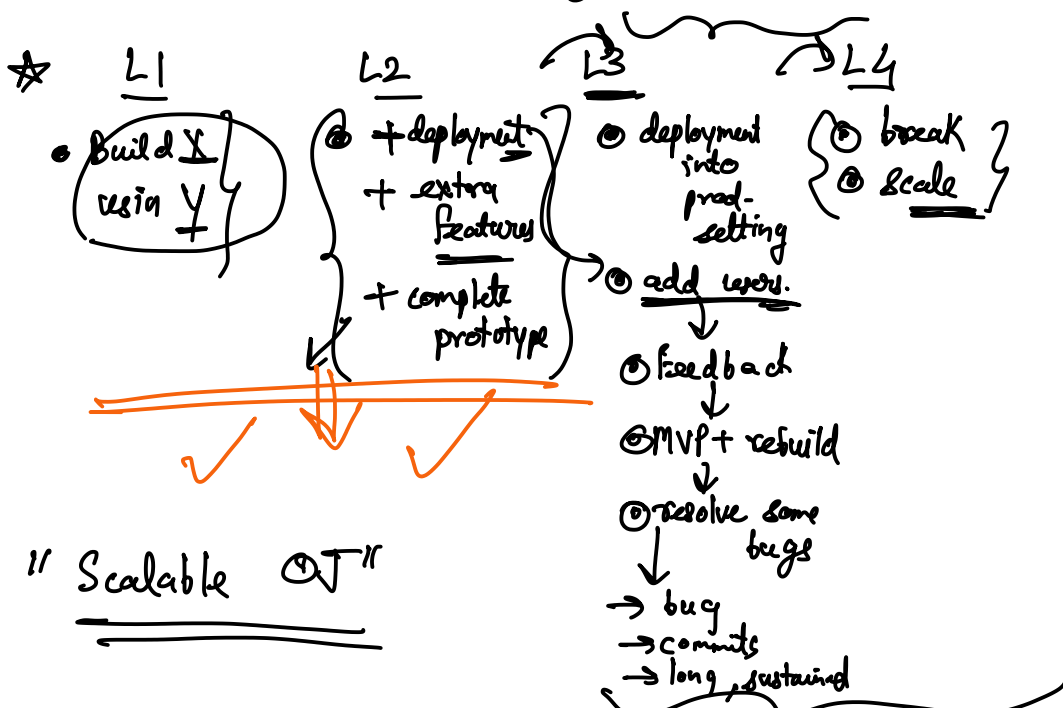 L1
Build X
using Y
L2
+ deployment
+ extra
features
+ complete
prototype
L3
deployment
into
prod-
setting
add users.
Feedback
MVP + rebuild
resolve some
bugs
→ bug
→ commits
→ long, sustained
L4
break
scale
"Scalable OJ"